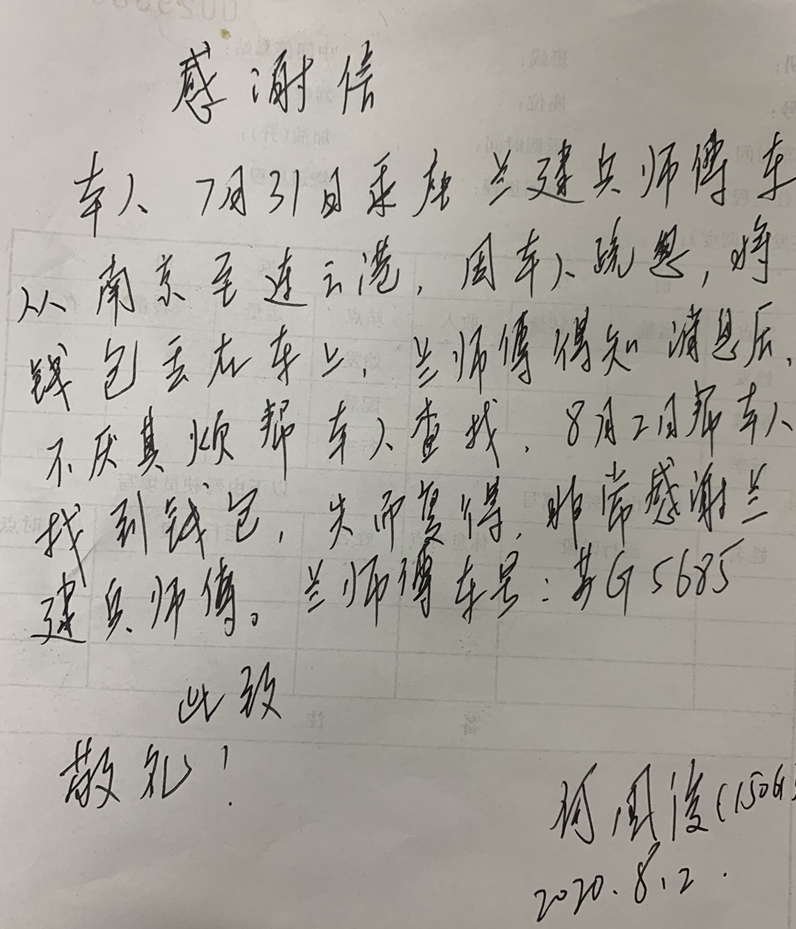 感谢信
本人7月31日乘座兰建兵师傅车
从南京至连云港，因本人疏忽，将
钱包丢在车上，兰师傅得知消息后，
不厌其烦帮本人查找，8月2日帮本人
找到钱包，失而复得，非常感谢兰
建兵师傅。兰师傅车号：苏G5685
此致
敬礼！
何国俊(1506
2020.8.2.